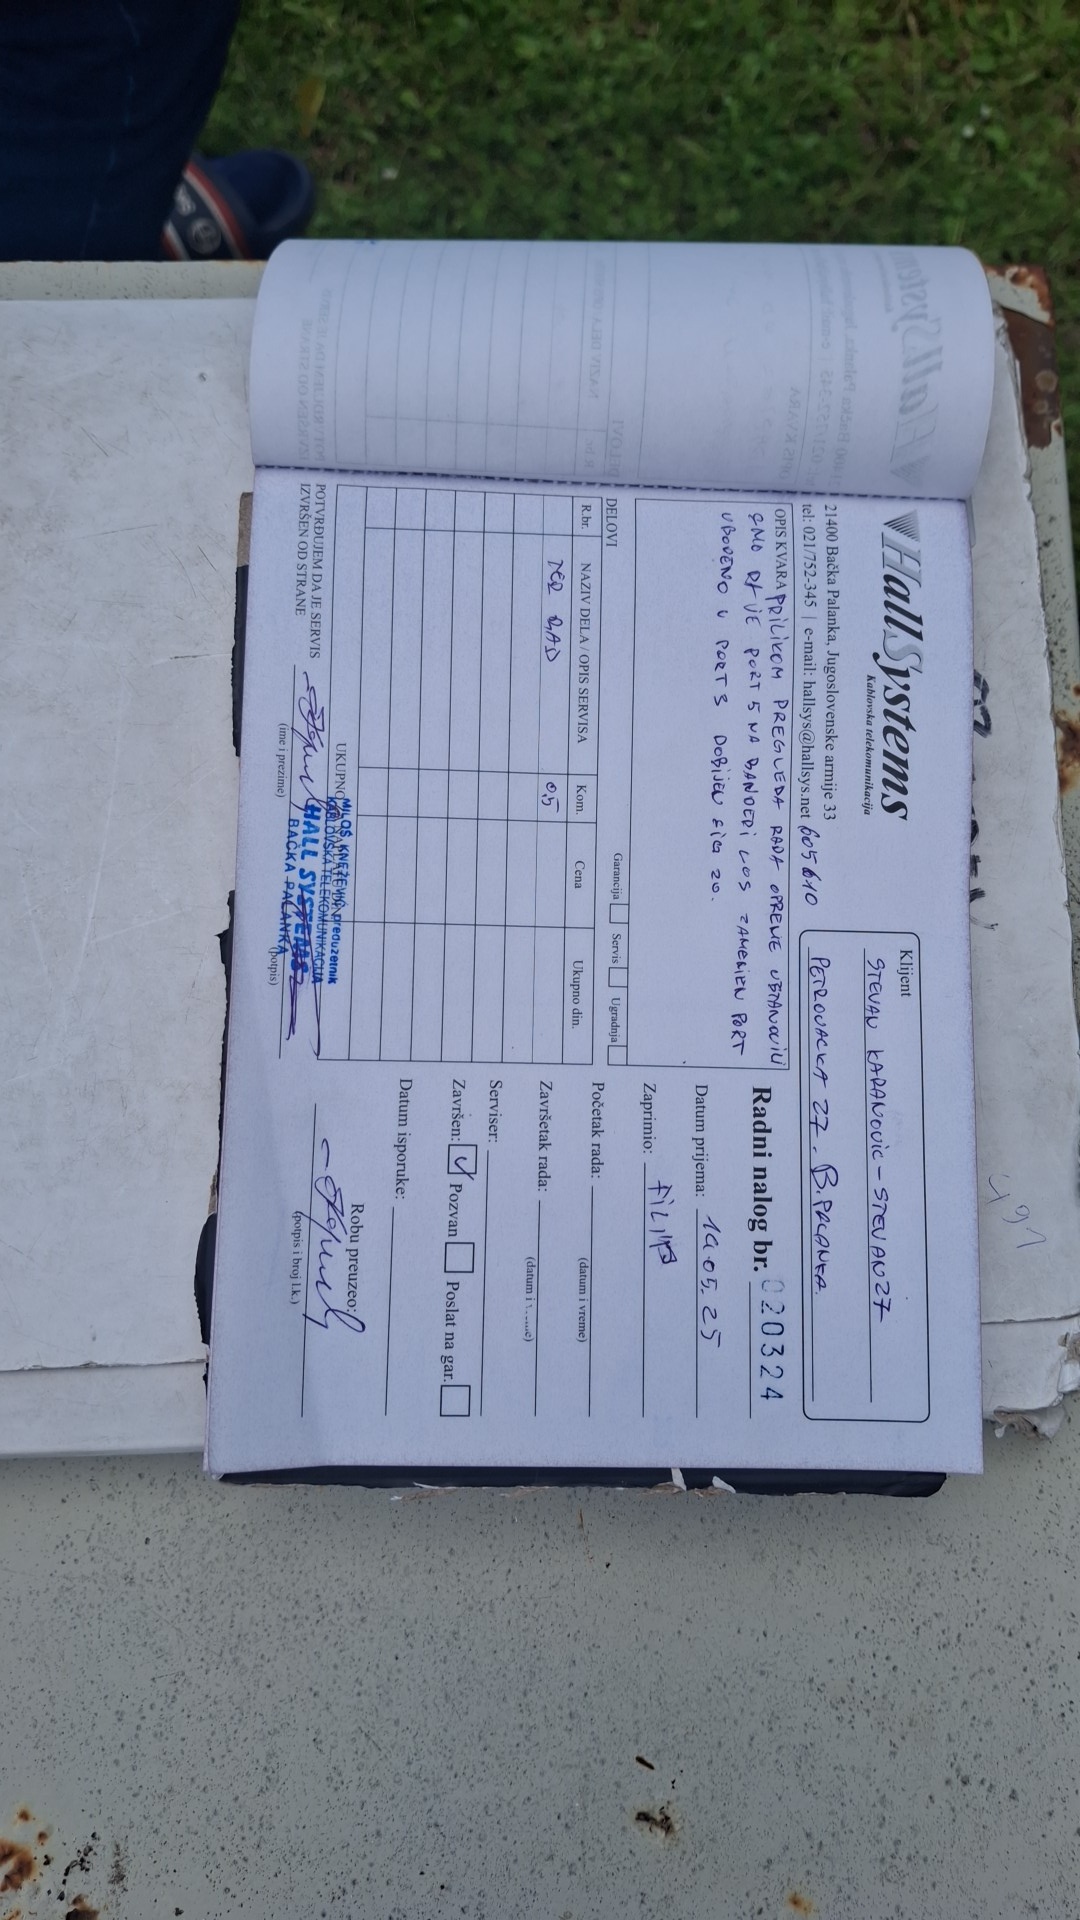 HallSystems
Kablovska telekomunikacija
21400 Bačka Palanka, Jugoslovenske armije 33
tel: 021/752-345 | e-mail: hallsys@hallsys.net 605610
Klijent
STEVAN KARANOVIC - STEVAN27
PETROVACKA 27. B. PALANKA.
OPIS KVARA PRILIKOM PREGLEDA RADA OPREME USTANOVILI
SMO DA JE PORT 5 NA BANDERI LOS ZAMENJEN PORT
UBODENO U PORT 3 DOBIJEN SIG 20.
Radni nalog br. 020324
Datum prijema: 19.05.25
Zaprimio: FILIP
Početak rada:
(datum i vreme)
Završetak rada:
Serviser:
Završen: Pozvan Poslat na gar.
Datum isporuke:
Robu preuzeo:
(potpis i broj l.k.)
Garancija Servis Ugradnja
DELOVI
R.br. NAZIV DELA / OPIS SERVISA Kom. Cena Ukupno din.
TER RAD 0,5
UKUPNO
POTVRĐUJEM DA JE SERVIS
IZVRŠEN OD STRANE
(ime i prezime) (potpis)
MILOŠ KNEŽEVIĆ preduzetnik
KABLOVSKA TELEKOMUNIKACIJA
HALL SYSTEMS
BAČKA PALANKA